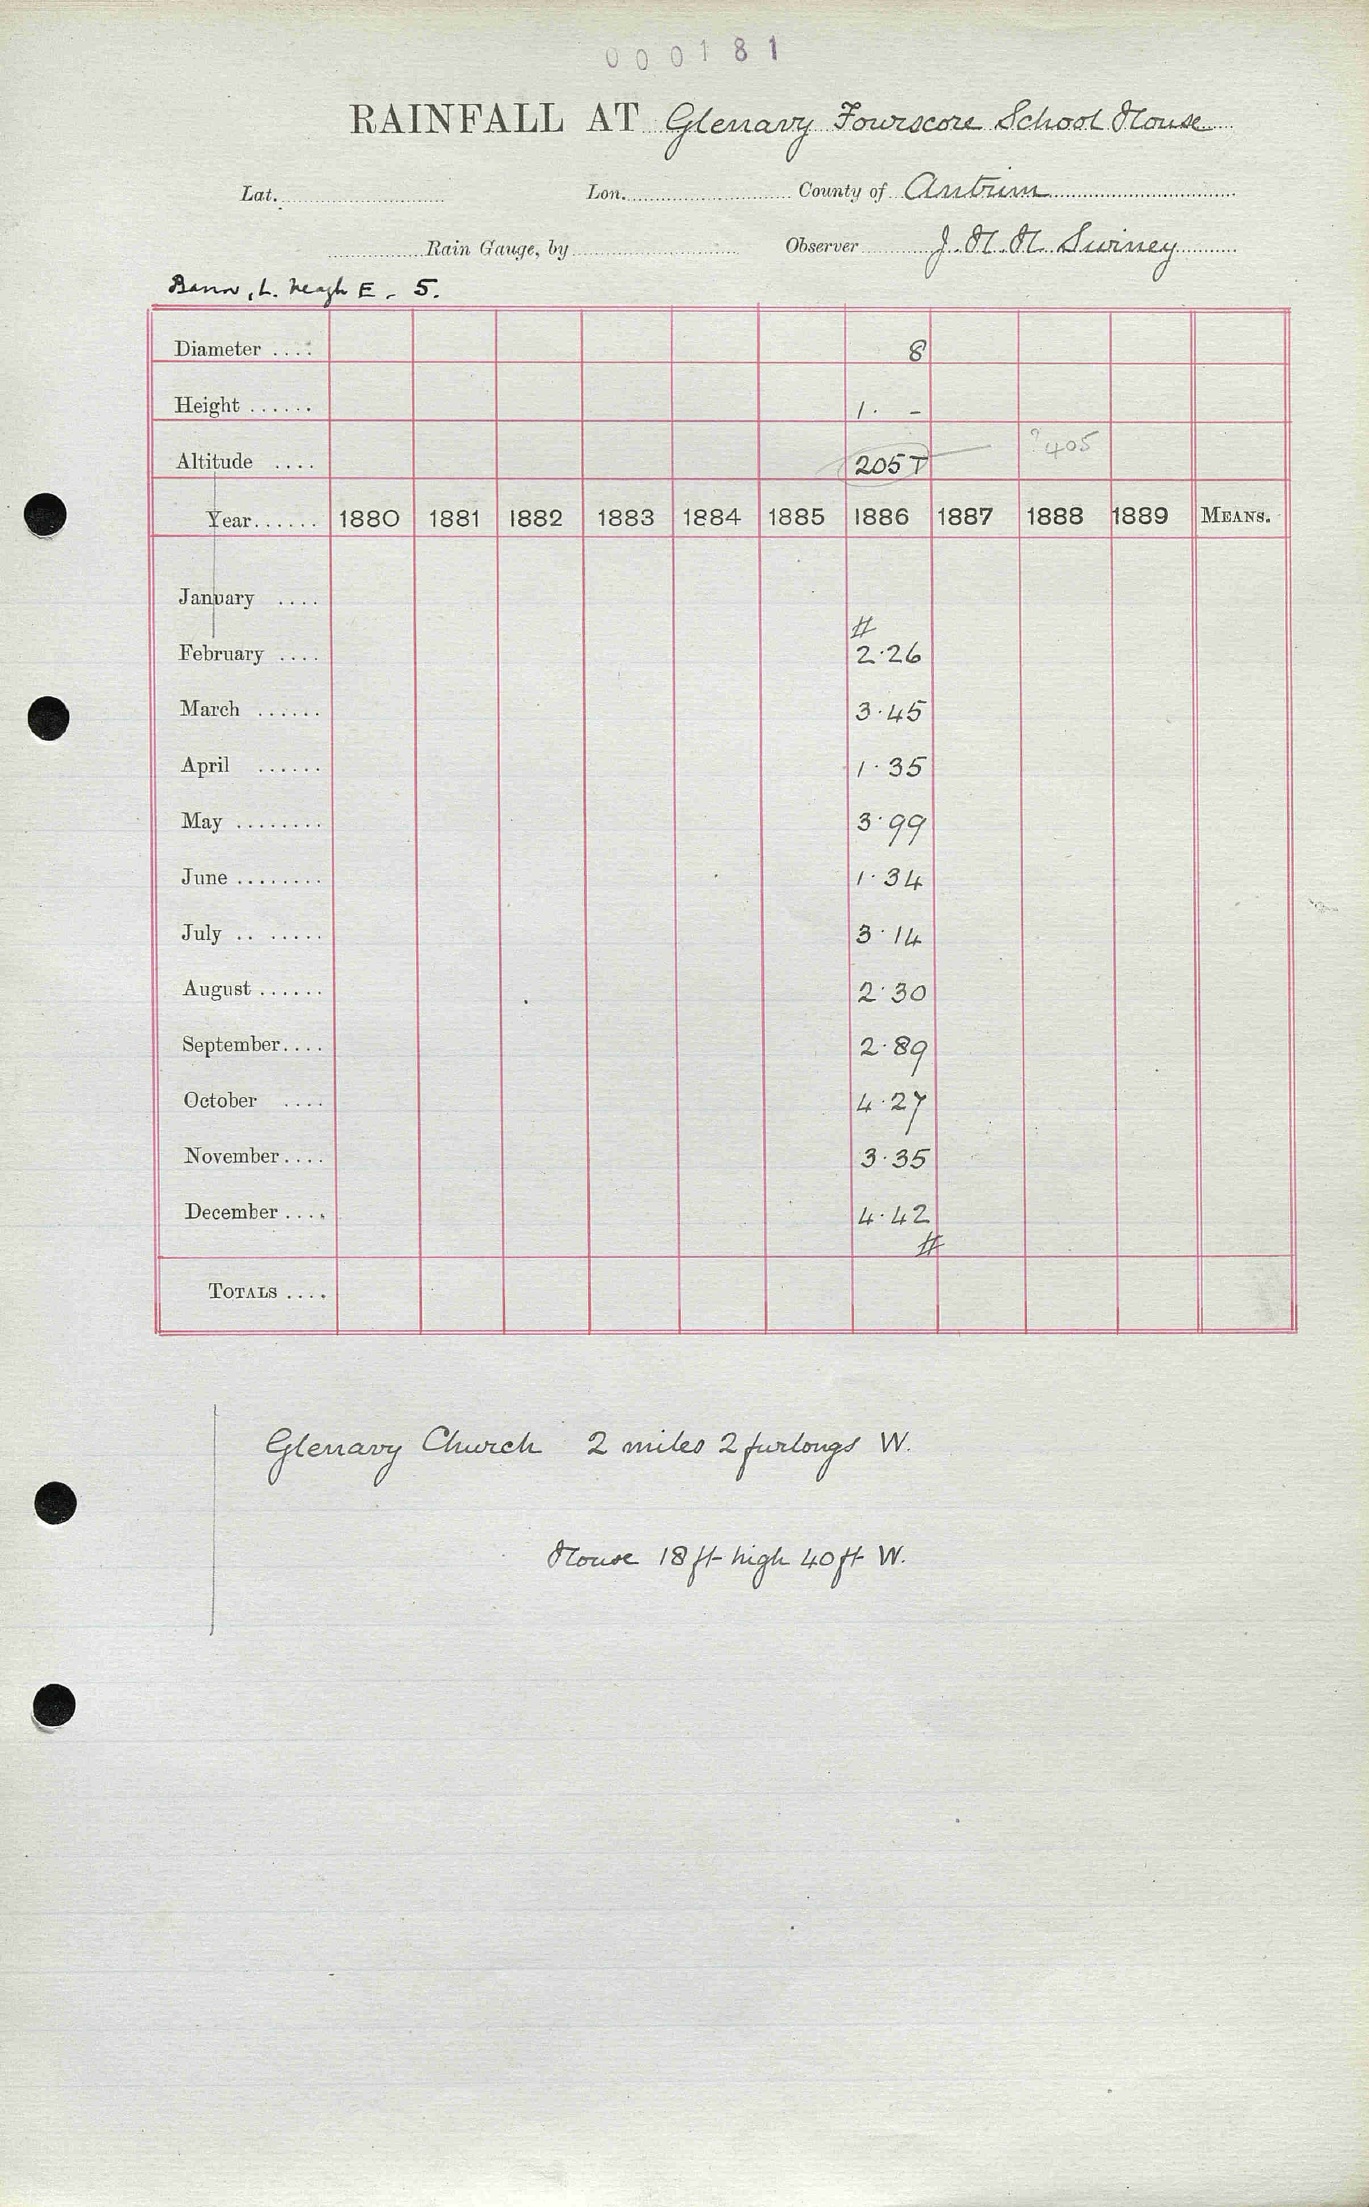 000181
RAINFALL AT Glenavy Fourscore School House
Lat. Lon. County of Antrim
Rain Gauge, by Observer J. H. H. Swiney
Bann, L. Neagh E - 5.
Diameter .... 8
Height ...... 1. -
Altitude .... 205 T ?405
Year...... 1880 1881 1882 1883 1884 1885 1886 1887 1888 1889 MEANS.
January ....
#
February .... 2.26
March ...... 3.45
April ...... 1.35
May ........ 3.99
June ........ 1.34
July .. ..... 3.14
August ...... 2.30
September.... 2.89
October .... 4.27
November.... 3.35
December .... 4.42
#
TOTALS ....
Glenavy Church 2 miles 2 furlongs W.
House 18 ft high 40 ft W.